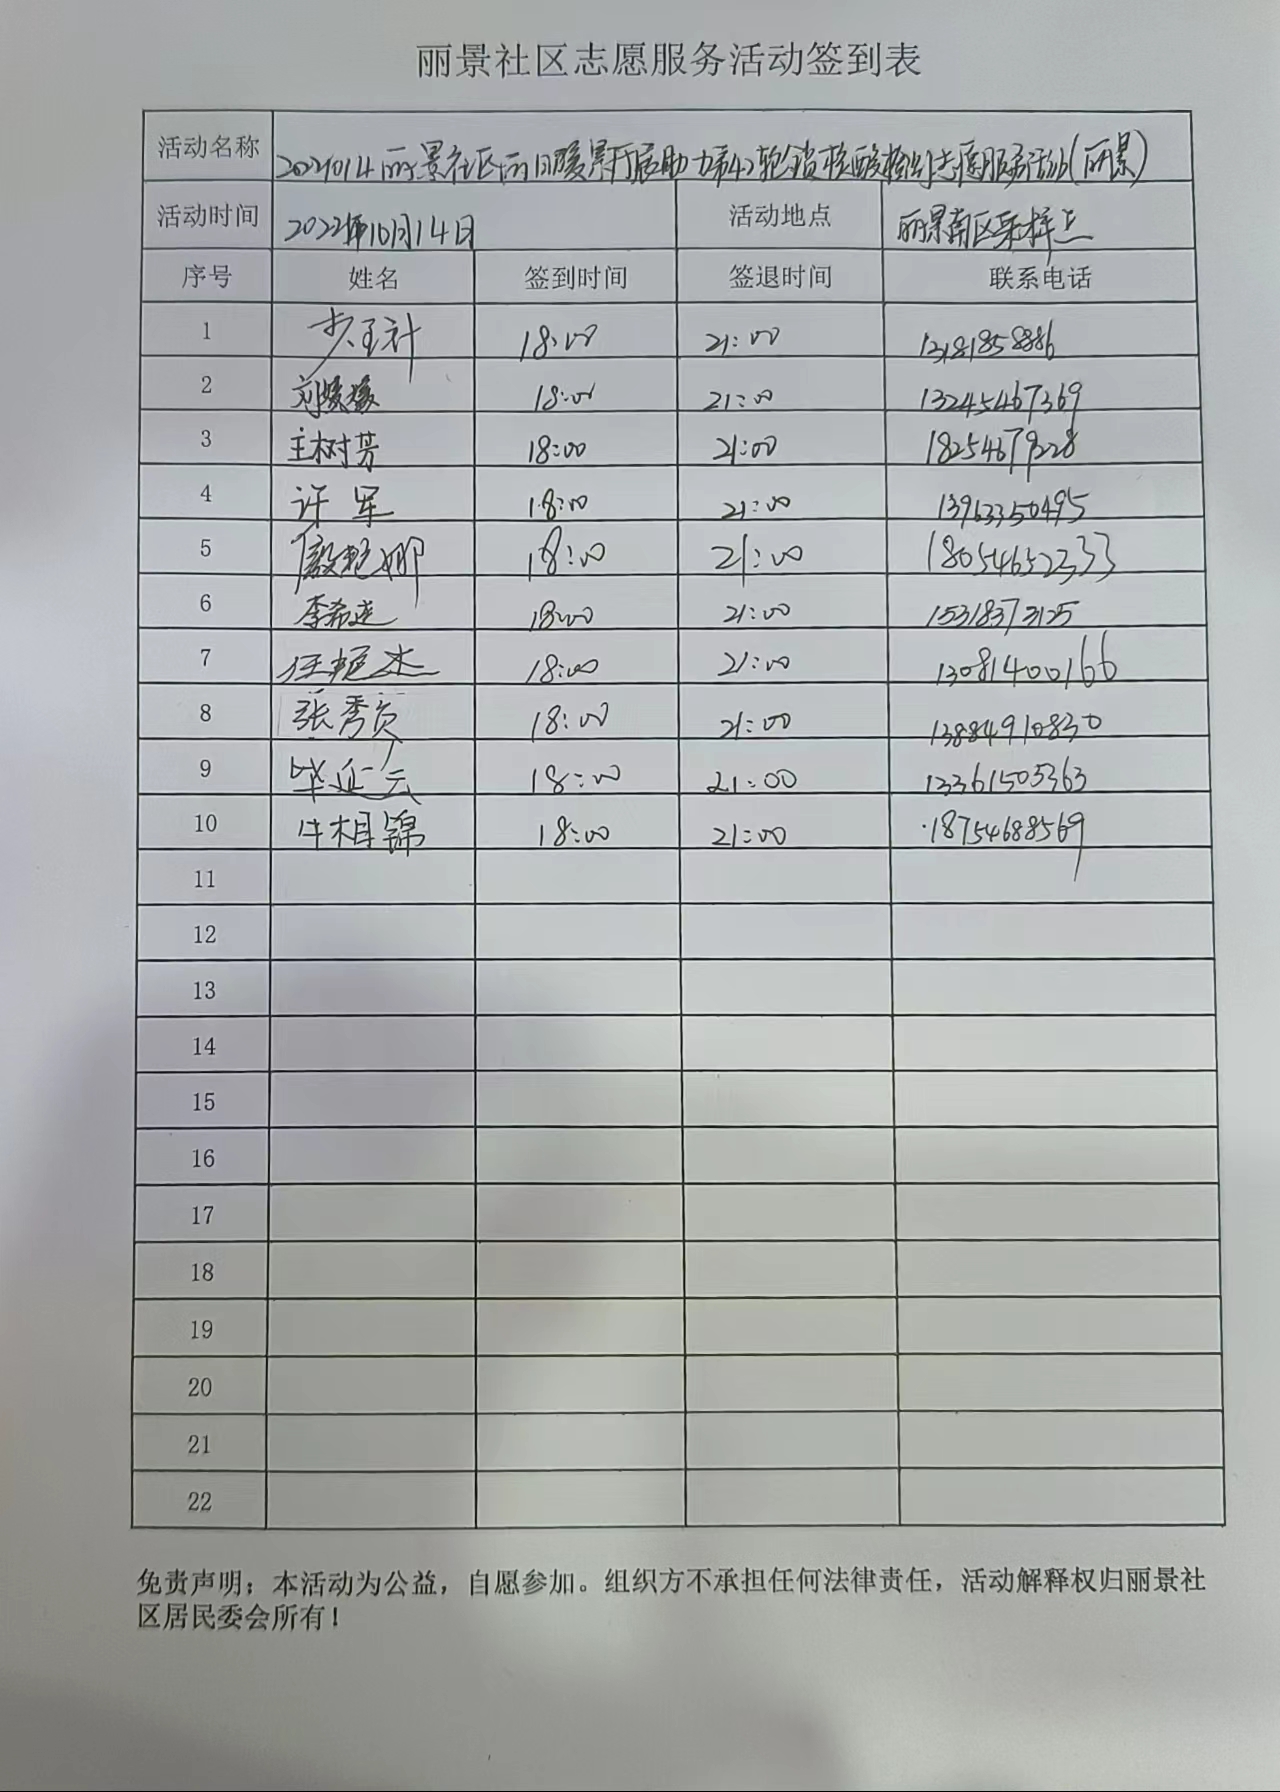 丽景社区志愿服务活动签到表
活动名称 丽景社区 助力第42轮 核酸检测志愿服务活动(丽景)
活动时间 2022年10月14日 活动地点 丽景南区采样点
序号 姓名 签到时间 签退时间 联系电话
1 18:00 21:00 13181858886
2 刘媛媛 18:00 21:00 13245467369
3 王树芳 18:00 21:00 18254679228
4 许军 18:00 21:00 13963350495
5 18:00 21:00 18054652333
6 李希连 18:00 21:00 15318373125
7 任艳杰 18:00 21:00 13081400166
8 张秀贞 18:00 21:00 13884910830
9 毕延云 18:00 21:00 13361505363
10 牛相锦 18:00 21:00 18754688569
11
12
13
14
15
16
17
18
19
20
21
22
免责声明：本活动为公益，自愿参加。组织方不承担任何法律责任，活动解释权归丽景社
区居民委会所有！